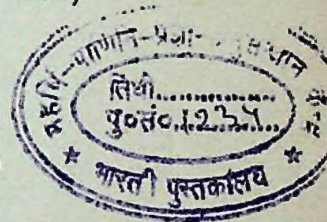 महर्षि-पाणिनि-प्रज्ञा-
तिथी..............
पु०सं०.1234......
* भारती पुस्तकालय *